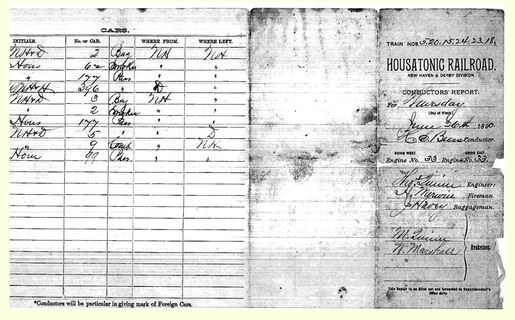 CARS.
INITIALS. No. OR CAR. WHERE FROM. WHERE LEFT.
NH&D 2 Bag NH NH
Hous 62 "
" 177 Pass " "
296 " D "
NH&D 3 Bag NH "
" 2 " "
Hous 177 Pass " "
NH&D 5 " " D
" 9 " NH
Hous 99 Pass " "
*Conductors will be particular in giving mark of Foreign Cars.
TRAIN NOS. 5.20.15.24.23.18.
HOUSATONIC RAILROAD.
NEW HAVEN & DERBY DIVISION.
CONDUCTORS' REPORT.
For Thursday
(Day of Week)
June 26th 1890
Conductor.
GOING WEST. GOING EAST.
Engine No. 33 Engine No. 33
Thos. Quinn Engineer.
Fireman.
Baggageman.
M. Quinn
W. Marshall
Brakemen.
This Report to be filled out and forwarded to Superintendent's
Office daily.